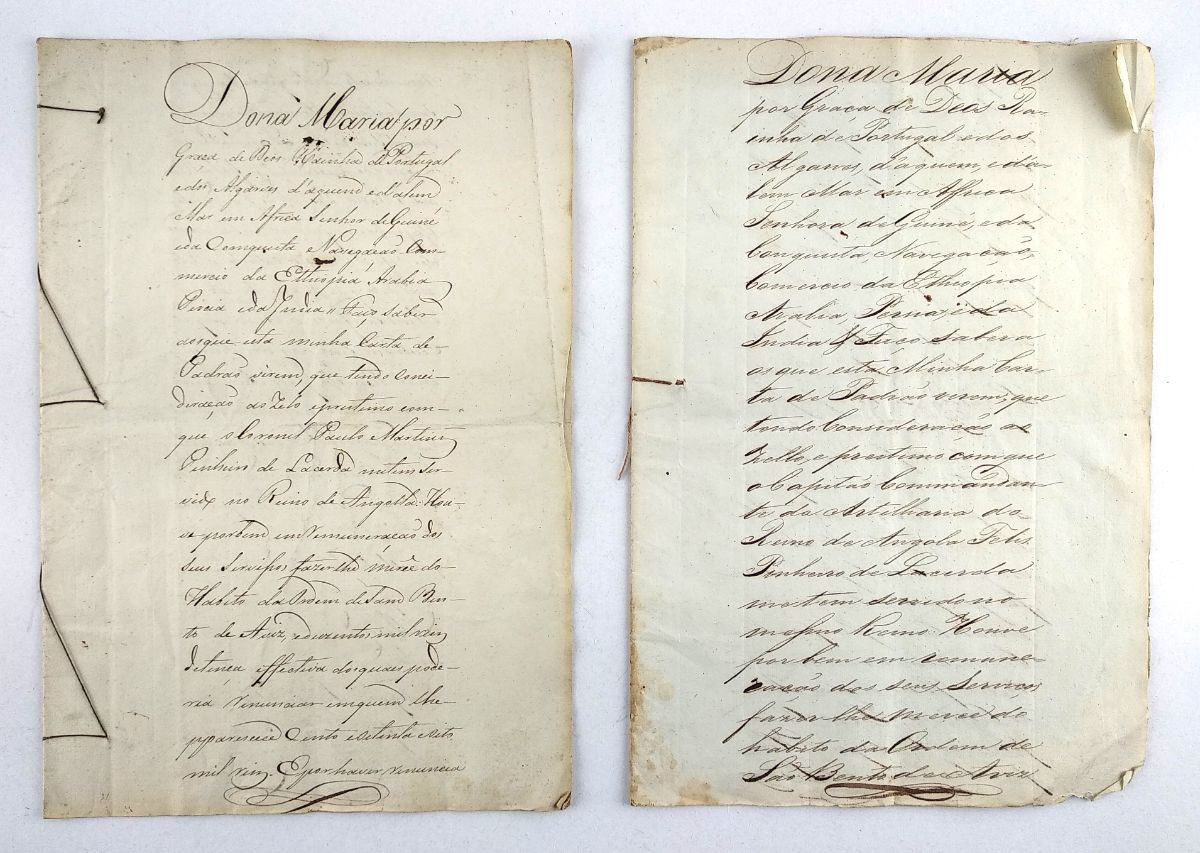 Dona Maria por
Graça de Deos Rainha de Portugal
e dos Algarves d'aquem e d'alem
Mar em Africa Senhor de Guiné
e da Comquista e Navegação Com-
mercio da Ethiopia Arabia
Percia e da India " Faço saber
aos que esta minha Carta de
Padrão virem, que tendo Consi-
diração ao Zelo e prestimo com-
que o Coronel Paulo Martins
Pinheiro de Lacerda me tem Ser-
vido no Reino de Angolla: Hou-
ve por bem em Remuneração dos
seus Serviços fazer lhe mercê do
Habito da Ordem de Sam Ben-
to de Aviz, e duzentos mil reis
de tença effectiva dos quais pode-
ria renunciar em quem lhe
pparecece Cento e setenta e oito
mil reis. E por haver renuncia
Dona Maria
por Graça de Deos Ra-
inha de Portugal e dos
Algarves, d'aquem, e d'a-
lem Mar em Affrica
Senhora de Guiné, e da
Conquista, Navegação,
Comercio da Ethiopia
Arabia, Persia, e da
India & Faço saber a
os que esta Minha Car-
ta de Padrão virem, que
tendo Consideração ao
Zello, e prestimo com que
o Capitão Commandan-
te da Artilharia do
Reino de Angola Felis
Pinheiro de Lacerda
me tem servido no
mesmo Reino: Houve
por bem em remune-
ração dos seus Serviços
fazer lhe Merce do
habito da Ordem de
São Bento de Aviz